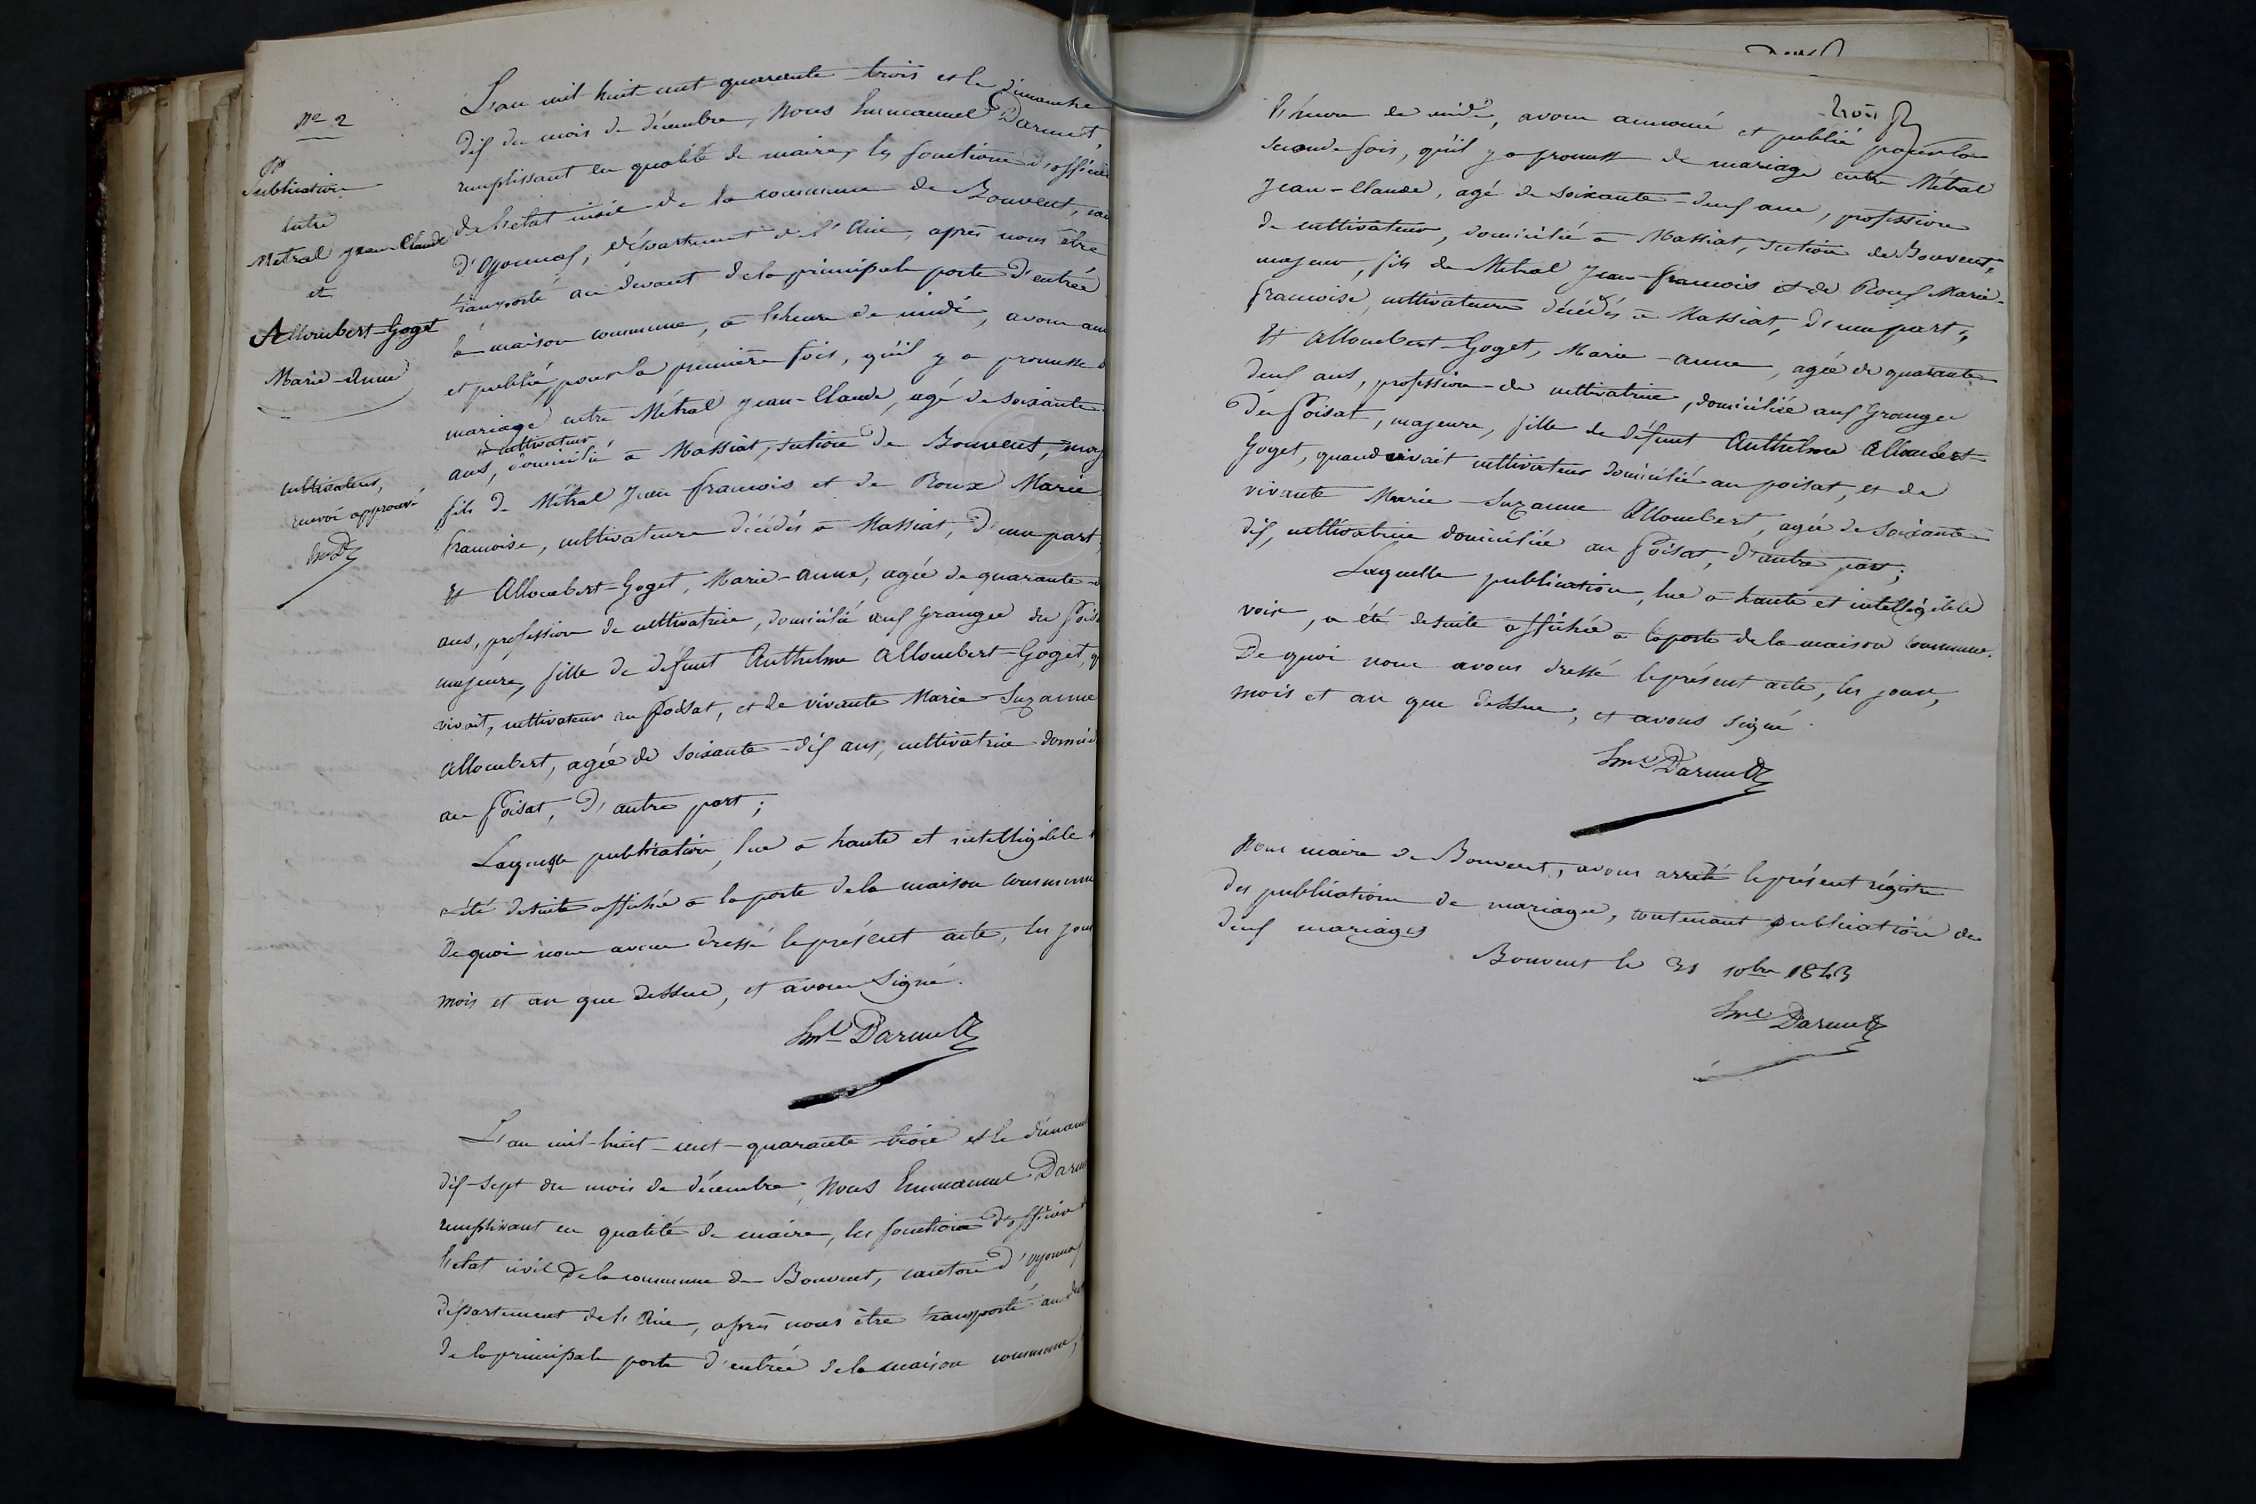 No 2
Publication
entre
Métral Jean Claude
et
Allombert-Goget
Marie-Anne
cultivateur,
renvoi approuvé
Em D
L'an mil huit cent quarante trois et le dimanche
dix du mois de décembre, Nous Emmanuel Darmet,
remplissant en qualité de maire, les fonctions d'officier
de l'état civil de la commune de Bouvent, can
d'Oyonnax, département de l'Ain, après nous être
transporté au devant de la principale porte d'entrée
la maison commune, à l'heure de midi, avons ann
et publié, pour la première fois, qu'il y a promesse d
mariage entre Métral Jean-Claude, agé de soixante
cultivateur
ans, domicilié à Massiat, section de Bouvent, maj
fils de Métral Jean françois et de Roux Marie
françoise, cultivateurs décédés à Massiat, d'une part;
Et Allombert-Goget, Marie-Anne, agée de quarante-
ans, profession de cultivatrice, domicilié aux Granges du Pois
majeure, fille de défunt Anthelme Allombert-Goget, q
vivait, cultivateur au Poisat, et de vivante Marie Suzanne
Allombert, agée de soixante-dix ans, cultivatrice domici
au Poisat, d'autre part;
Laquelle publication, lue à haute et intelligible
a été desuite affichée à la porte de la maison commune
De quoi nous avons dressé le présent acte, les jour
mois et an que dessus, et avons signé.
Em.l Darmet
L'an mil-huit-cent-quarante trois et le dimanc
dix-sept du mois de décembre, Nous Emmanuel Darm
remplissant en qualité de maire, les fonctions d'officier
l'état civil de la commune de Bouvent, canton d'Oyonnax
département de l'Ain, après nous être transporté au dev
de la principale porte d'entrée de la maison commune,
trois
l'heure de midi, avons annoncé et publié pour la
seconde fois, qu'il y a promesse de mariage entre Métral
Jean-Claude, agé de soixante-deux ans, profession
de cultivateur, domicilié à Massiat, section de Bouvent,
majeur, fils de Métral Jean-françois et de Roux Marie-
françoise, cultivateurs décédés à Massiat, d'une part;
Et Allombert-Goget, Marie-Anne, agée de quarante-
deux ans, profession de cultivatrice, domiciliée aux Granges
du Poisat, majeure, fille de défunt Anthelme Allombert
Goget, quand vivait cultivateur domicilié au poisat, et de
vivante Marie-Suzanne Allombert, agée de soixante-
dix, cultivatrice domiciliée au Poisat, d'autre part;
Laquelle publication, lue à haute et intelligible
voix, a été desuite affichée à la porte de la maison commune.
De quoi nous avons dressé le présent acte, les jour,
mois et an que dessus, et avons signé.
Em.l Darmet
Nous maire de Bouvent, avons arrêté le présent régistre
des publications de mariages, contenant publication de
deux mariages
Bouvent le 31 10bre 1843
Em.l Darmet